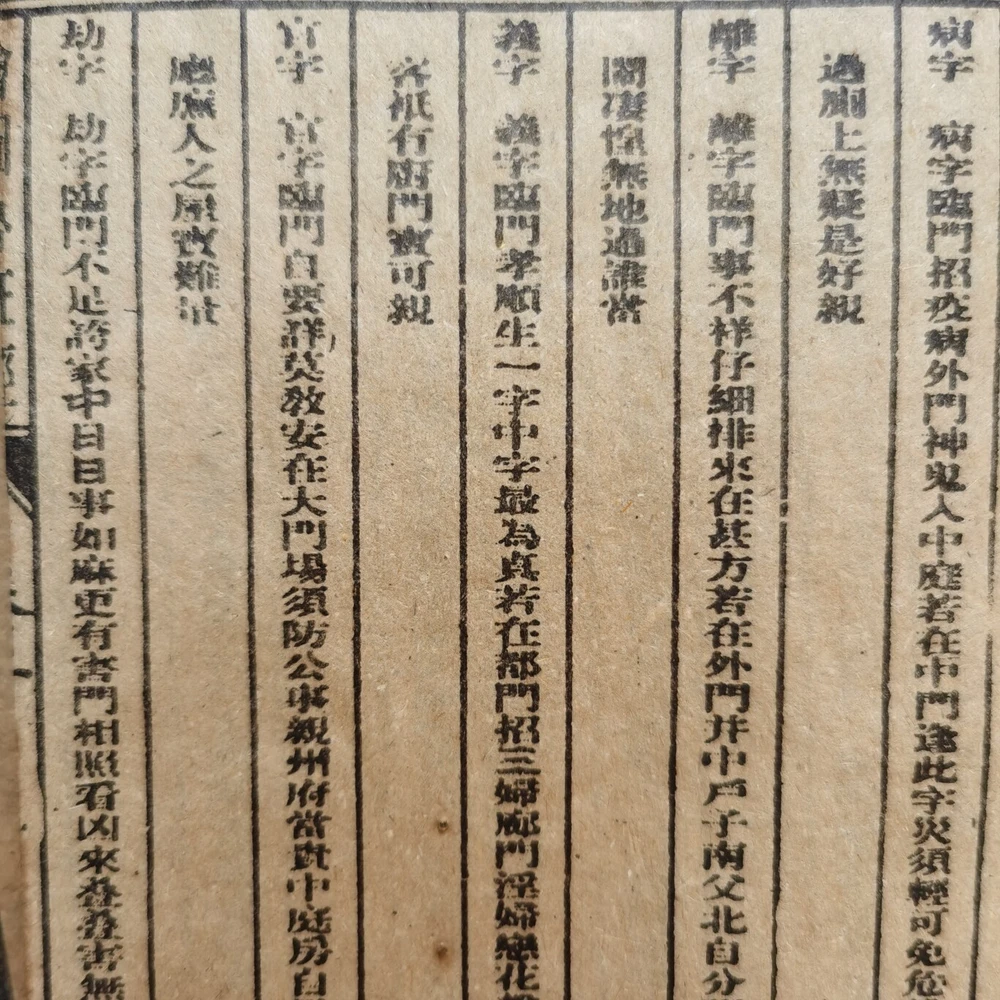 病字　病字臨門招疫病外門神鬼入中庭若在中門逢此字災須輕可免危
過廁上無疑是好親
離字　離字臨門事不祥仔細排來在甚方若在外門并中戶子南父北自分
閨淒惶無地過誰當
義字　義字臨門孝順生一字中字最為真若在都門招三婦廊門淫婦戀花
客祇有廚門實可親
官字　官字臨門自要詳莫教安在大門場須防公事親州府當貴中庭房自
廳廡人之屋實難量
劫字　劫字臨門不足誇家中日日事如麻更有害門相照看凶來疊疊害無